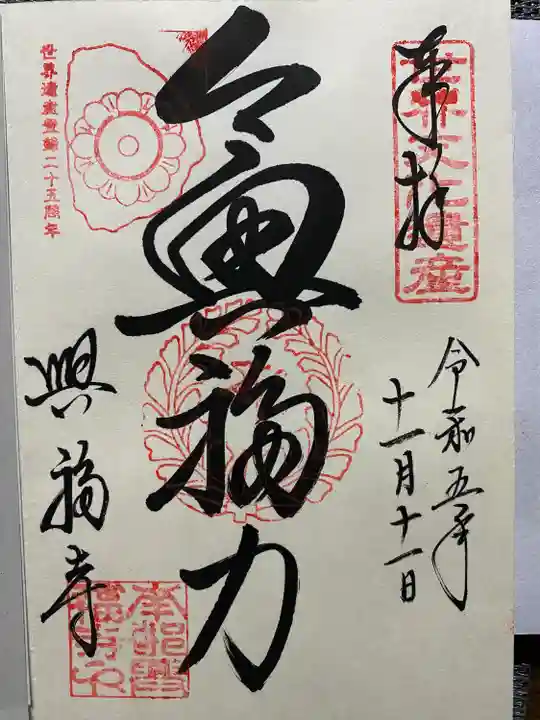 奉拝
世界文化遺産
令和五年
十一月十一日
令興福力
興福寺
世界遺産登録二十五周年